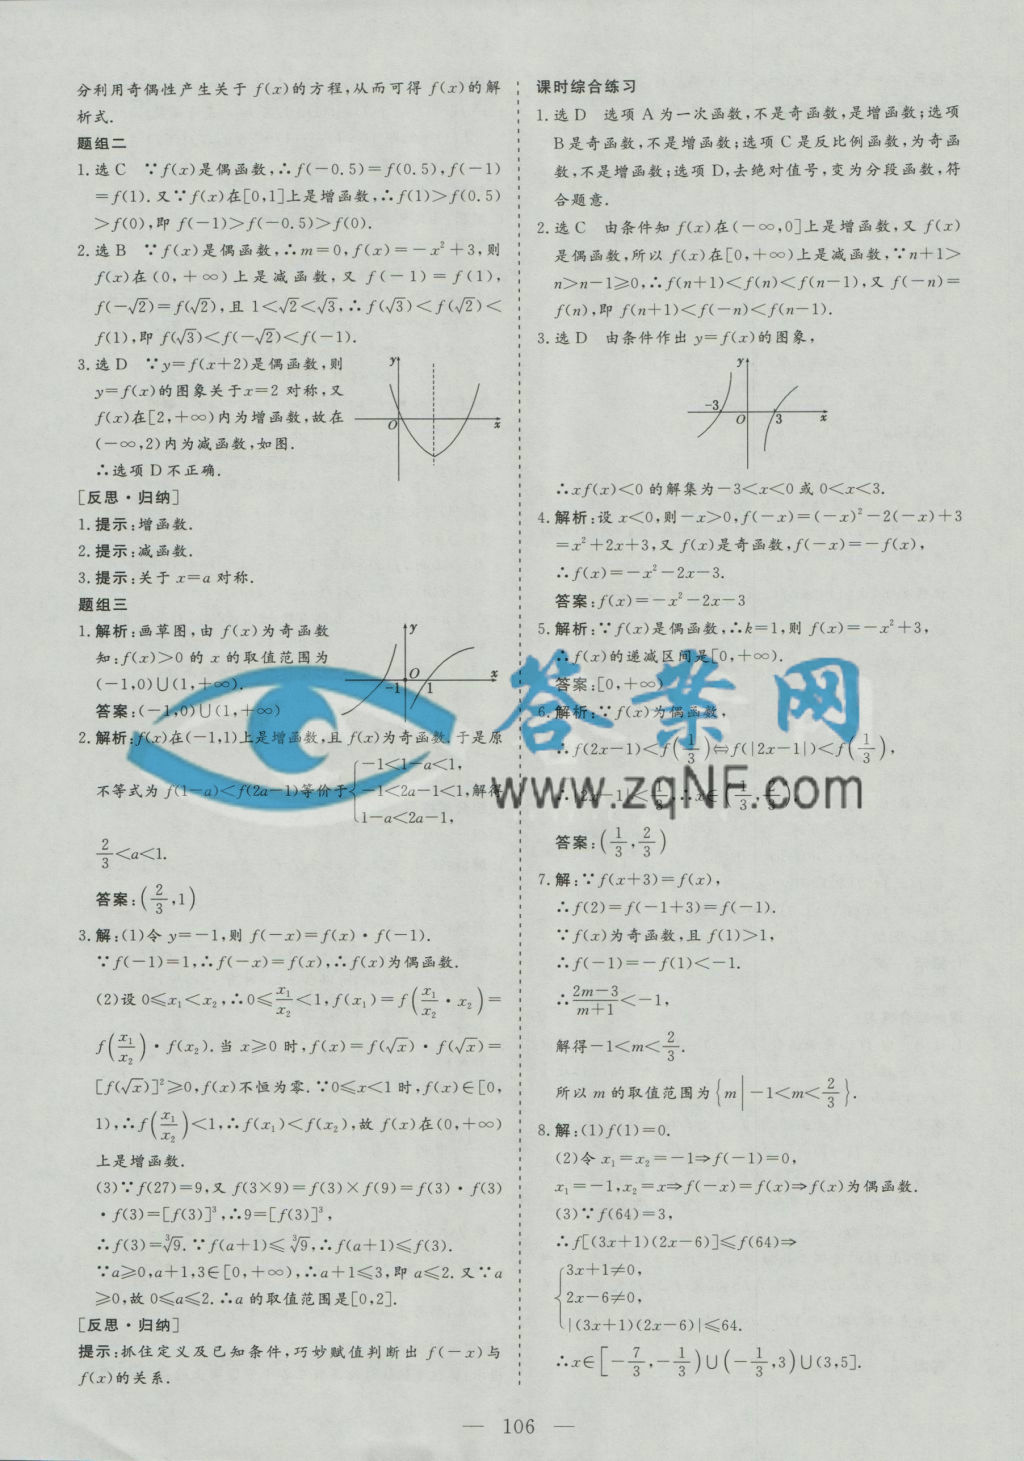 分利用奇偶性产生关于 f(x)的方程,从而可得 f(x)的解
析式.
题组二
1. 选 C ∵f(x)是偶函数,∴f(-0.5)=f(0.5),f(-1)
=f(1).又∵f(x)在[0,1]上是增函数,∴f(1)>f(0.5)
>f(0),即 f(-1)>f(-0.5)>f(0).
2. 选 B ∵f(x)是偶函数,∴m=0,f(x)=-x²+3,则
f(x)在(0,+∞)上是减函数,又 f(-1)=f(1),
f(-√2)=f(√2),且 1<√2<√3,∴f(√3)<f(√2)<
f(1),即 f(√3)<f(-√2)<f(-1).
3. 选 D ∵y=f(x+2)是偶函数,则
y=f(x)的图象关于x=2 对称,又
f(x)在[2,+∞)内为增函数,故在
(-∞,2)内为减函数,如图.
∴选项 D 不正确.
y
O
x
[反思·归纳]
1. 提示:增函数.
2. 提示:减函数.
3. 提示:关于 x=a 对称.
题组三
1. 解析:画草图,由 f(x)为奇函数
知:f(x)>0 的 x 的取值范围为
(-1,0)∪(1,+∞).
答案:(-1,0)∪(1,+∞)
y
O
x
-1
1
2. 解析:f(x)在(-1,1)上是增函数,且 f(x)为奇函数.于是原
不等式为 f(1-a)<f(2a-1)等价于{-1<1-a<1,
-1<2a-1<1,解得
1-a<2a-1,
2/3<a<1.
答案:(2/3,1)
3. 解:(1)令 y=-1,则 f(-x)=f(x)·f(-1).
∵f(-1)=1,∴f(-x)=f(x),∴f(x)为偶函数.
(2)设 0≤x₁<x₂,∴0≤x₁/x₂<1,f(x₁)=f(x₁/x₂·x₂)=
f(x₁/x₂)·f(x₂).当 x≥0 时,f(x)=f(√x)·f(√x)=
[f(√x)]²≥0,f(x)不恒为零.∵0≤x<1 时,f(x)∈[0,
1),∴f(x₁/x₂)<1,∴f(x₁)<f(x₂),故 f(x)在(0,+∞)
上是增函数.
(3)∵f(27)=9,又 f(3×9)=f(3)×f(9)=f(3)·f(3)
·f(3)=[f(3)]³,∴9=[f(3)]³,
∴f(3)=∛9.∵f(a+1)≤∛9,∴f(a+1)≤f(3).
∵a≥0,a+1,3∈[0,+∞),∴a+1≤3,即 a≤2.又∵a
≥0,故 0≤a≤2.∴a 的取值范围是[0,2].
[反思·归纳]
提示:抓住定义及已知条件,巧妙赋值判断出 f(-x)与
f(x)的关系.
课时综合练习
1. 选 D 选项 A 为一次函数,不是奇函数,是增函数;选项
B是奇函数,不是增函数;选项 C 是反比例函数,为奇函
数,不是增函数;选项 D,去绝对值号,变为分段函数,符
合题意.
2. 选 C 由条件知 f(x)在(-∞,0]上是增函数,又 f(x)
是偶函数,所以 f(x)在[0,+∞)上是减函数,∵n+1>
n>n-1≥0,∴f(n+1)<f(n)<f(n-1),又 f(-n)=
f(n),即 f(n+1)<f(-n)<f(n-1).
3. 选 D 由条件作出 y=f(x)的图象,
y
-3
O
3
x
∴xf(x)<0 的解集为-3<x<0 或 0<x<3.
4. 解析:设 x<0,则-x>0,f(-x)=(-x)²-2(-x)+3
=x²+2x+3,又 f(x)是奇函数,f(-x)=-f(x),
∴f(x)=-x²-2x-3.
答案:f(x)=-x²-2x-3
5. 解析:∵f(x)是偶函数,∴k=1,则 f(x)=-x²+3,
∴f(x)的递减区间是[0,+∞).
答案:[0,+∞)
6. 解析:∵f(x)为偶函数,
∴f(2x-1)<f(1/3)⇔f(|2x-1|)<f(1/3),
答案:(1/3,2/3)
7. 解:∵f(x+3)=f(x),
∴f(2)=f(-1+3)=f(-1).
∵f(x)为奇函数,且 f(1)>1,
∴f(-1)=-f(1)<-1.
∴(2m-3)/(m+1)<-1,
解得-1<m<2/3.
所以 m 的取值范围为{m|-1<m<2/3}.
8. 解:(1)f(1)=0.
(2)令 x₁=x₂=-1⇒f(-1)=0,
x₁=-1,x₂=x⇒f(-x)=f(x)⇒f(x)为偶函数.
(3)∵f(64)=3,
∴f[(3x+1)(2x-6)]≤f(64)⇒
{3x+1≠0,
2x-6≠0,
|(3x+1)(2x-6)|≤64.
∴x∈[-7/3,-1/3)∪(-1/3,3)∪(3,5].
答案网
www.zqNF.com
— 106 —